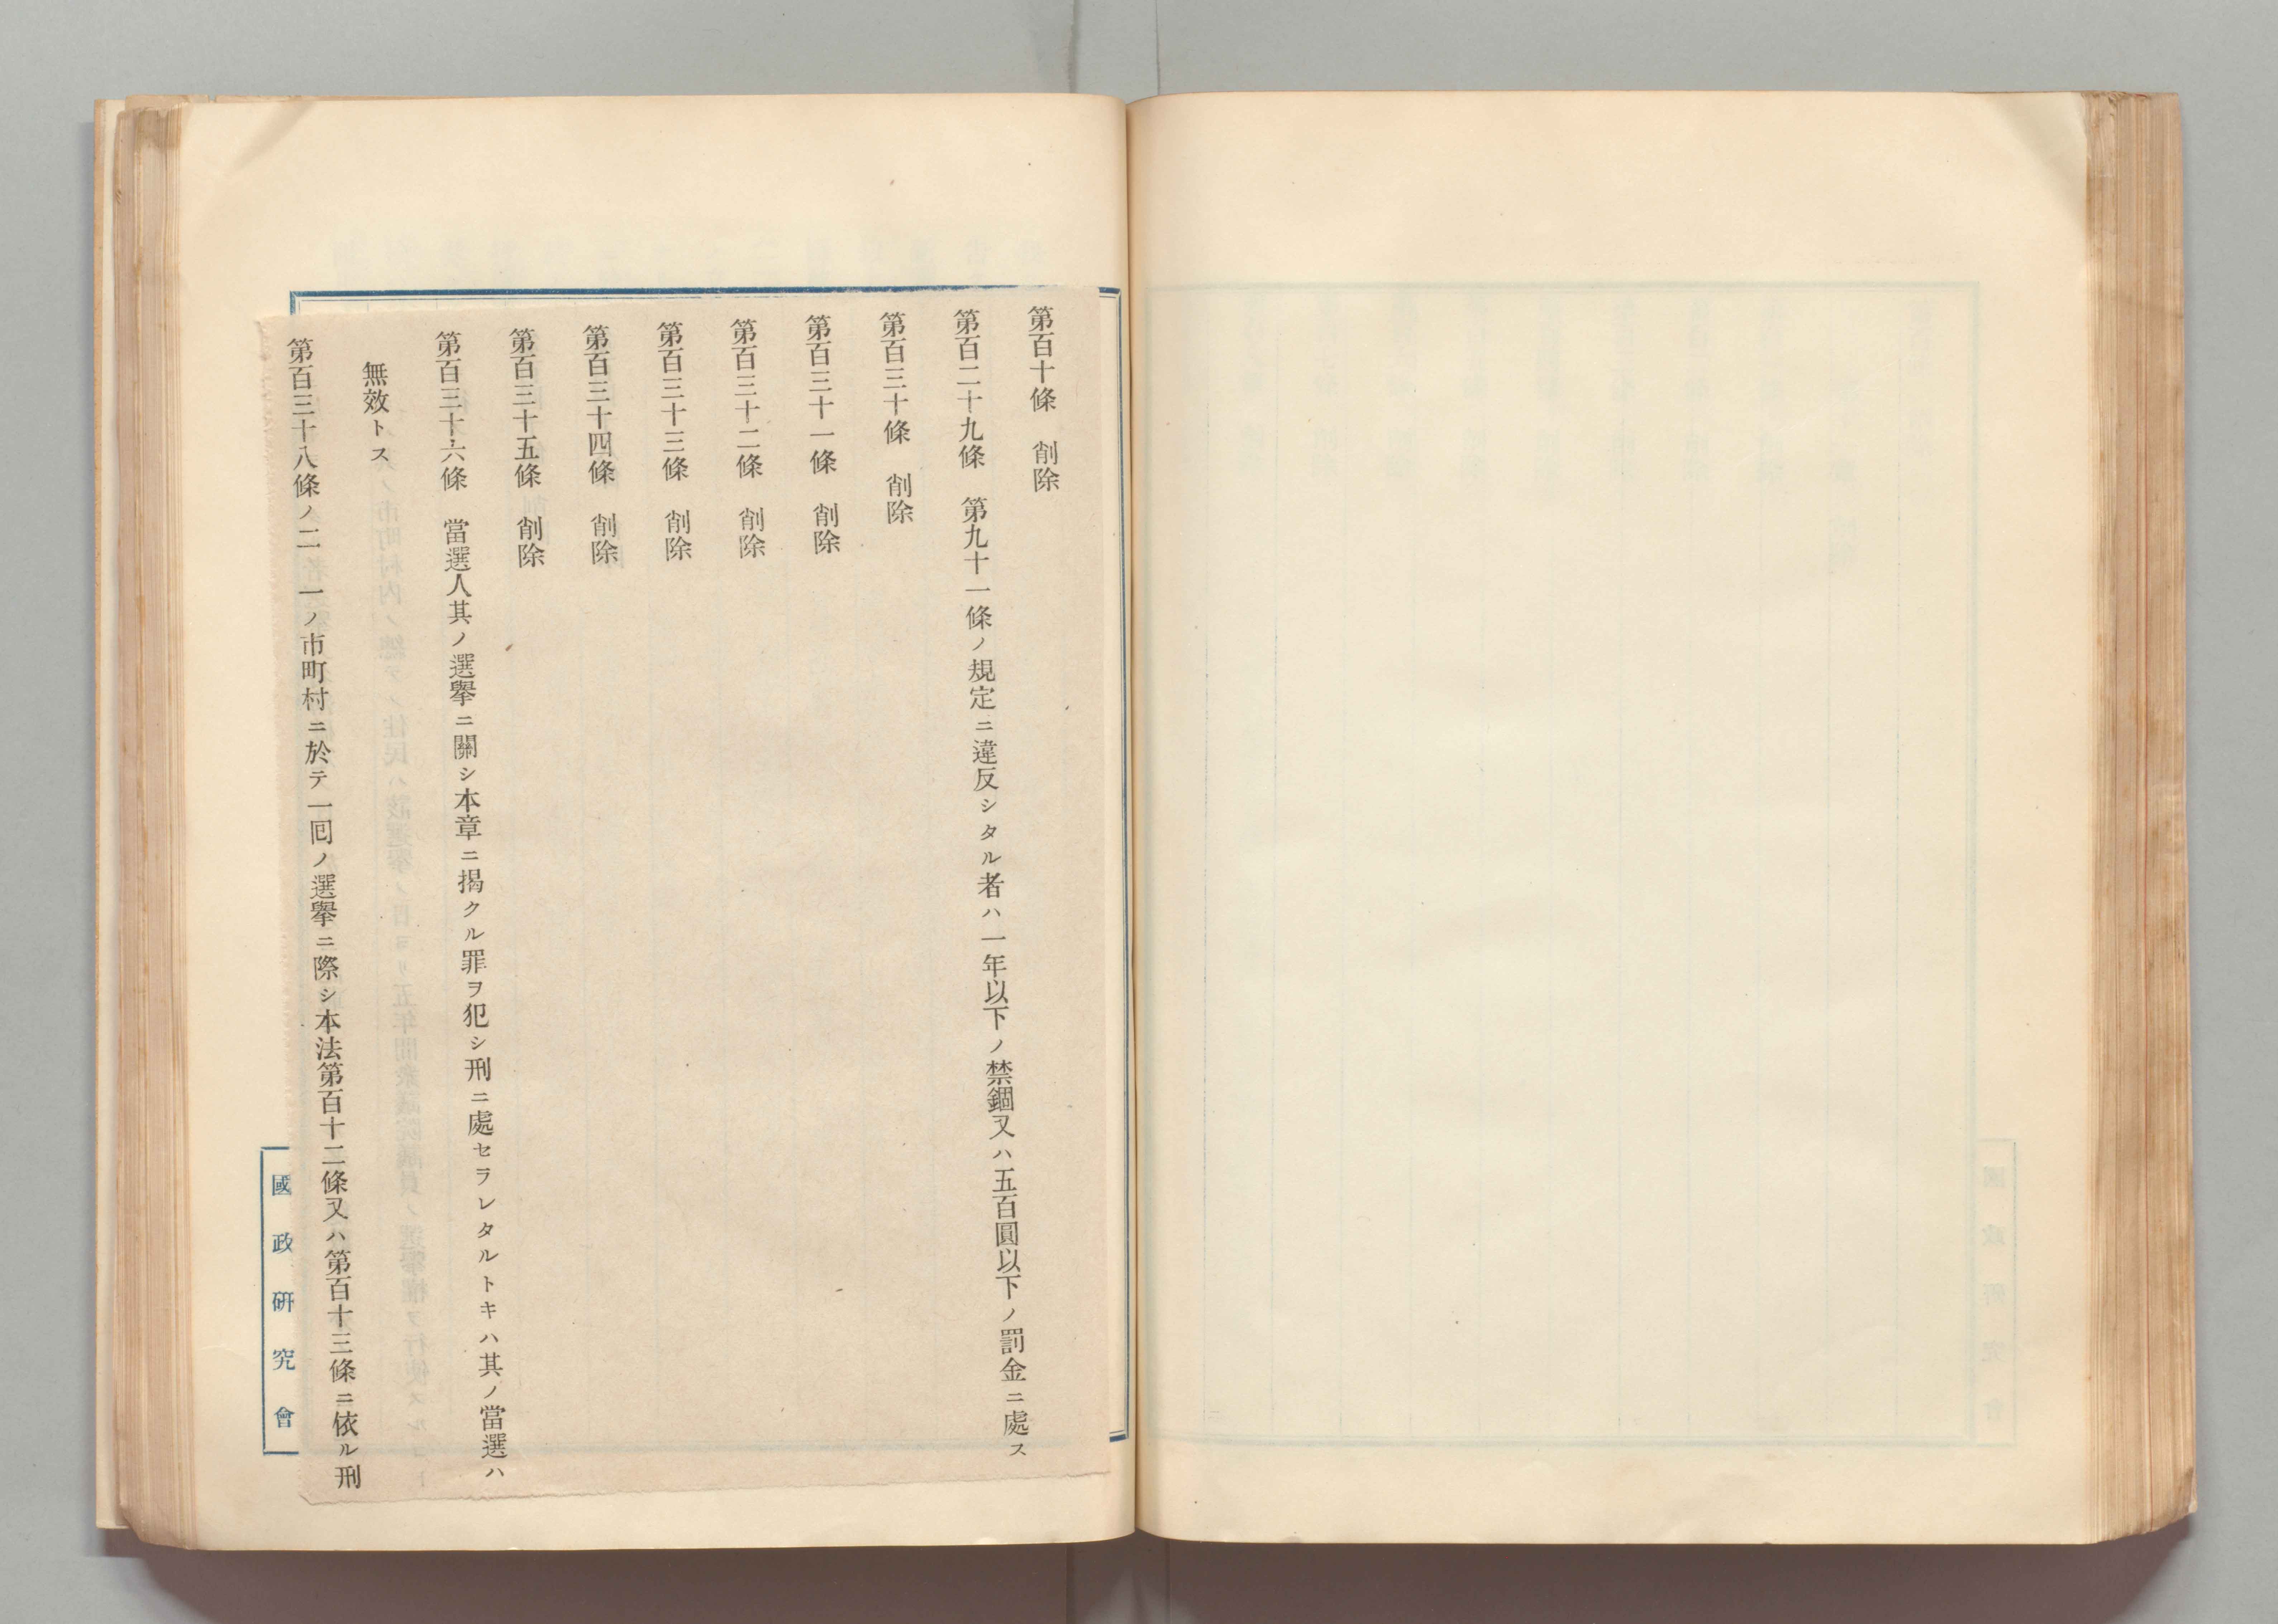 第百十條　削除
第百二十九條　第九十一條ノ規定ニ違反シタル者ハ一年以下ノ禁錮又ハ五百圓以下ノ罰金ニ處ス
第百三十條　削除
第百三十一條　削除
第百三十二條　削除
第百三十三條　削除
第百三十四條　削除
第百三十五條　削除
第百三十六條　當選人其ノ選擧ニ關シ本章ニ揭クル罪ヲ犯シ刑ニ處セラレタルトキハ其ノ當選ハ
無效トス
第百三十八條ノ二　一ノ市町村ニ於テ一囘ノ選擧ニ際シ本法第百十二條又ハ第百十三條ニ依ル刑
國政硏究會